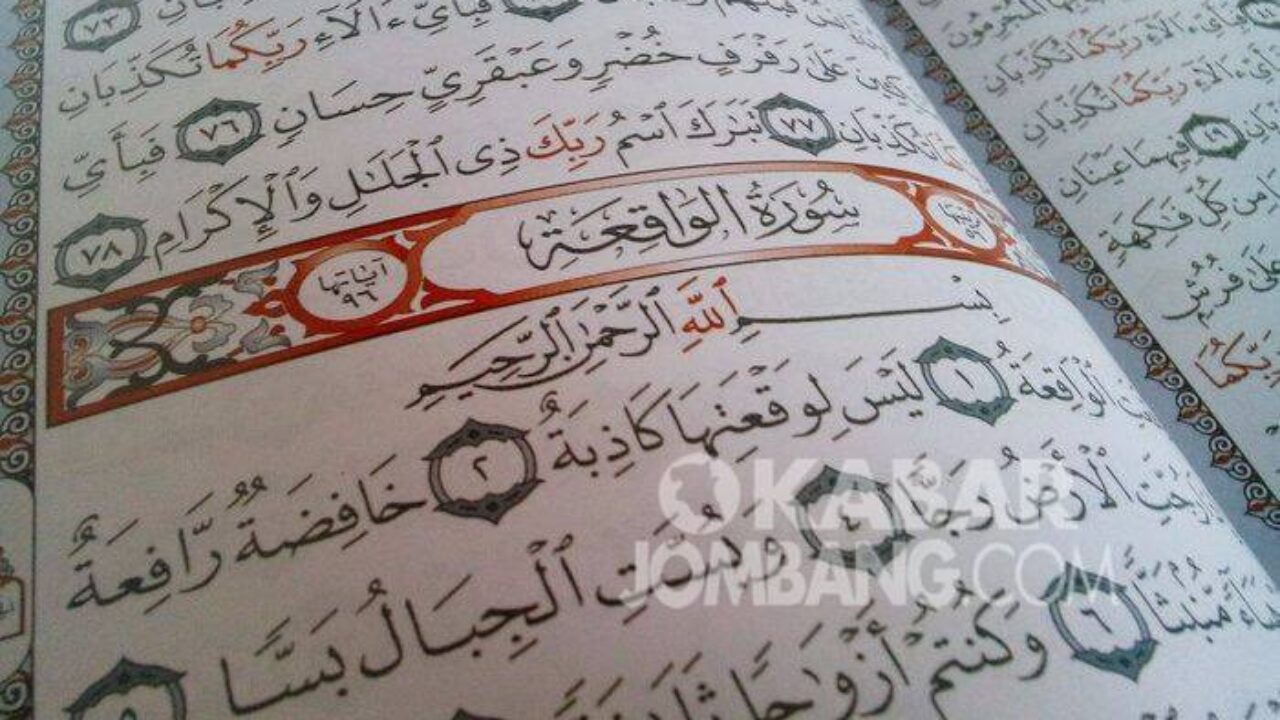 ٧٣
فَبِأَىِّ ءَالَآءِ رَبِّكُمَا تُكَذِّبَانِ
عَلَىٰ رَفْرَفٍ خُضْرٍ وَعَبْقَرِىٍّ حِسَانٍ ٧٦ فَبِأَىِّ
تُكَذِّبَانِ ٧٧ تَبَٰرَكَ ٱسْمُ رَبِّكَ ذِى ٱلْجَلَٰلِ وَٱلْإِكْرَامِ ٧٨
سُورَةُ الوَاقِعَةِ آيَاتُهَا ٩٦
بِسْمِ ٱللَّهِ ٱلرَّحْمَٰنِ ٱلرَّحِيمِ
ٱلْوَاقِعَةُ ١ لَيْسَ لِوَقْعَتِهَا كَاذِبَةٌ ٢ خَافِضَةٌ رَّافِعَةٌ
ٱلْأَرْضُ رَجًّا ٤ وَبُسَّتِ ٱلْجِبَالُ بَسًّا ٥
مُّنۢبَثًّا ٦ وَكُنتُمْ أَزْوَٰجًا ثَلَٰثَةً
ٱلْمُجْرِمُونَ
ءَالَآءِ رَبِّكُمَا تُكَذِّبَانِ
ءَالَآءِ رَبِّكُمَا تُكَذِّبَانِ
فِيهِمَا عَيْنَانِ
مِن كُلِّ فَٰكِهَةٍ
عَلَىٰ فُرُشٍ
رَبِّكُمَا
KABAR
JOMBANG.COM